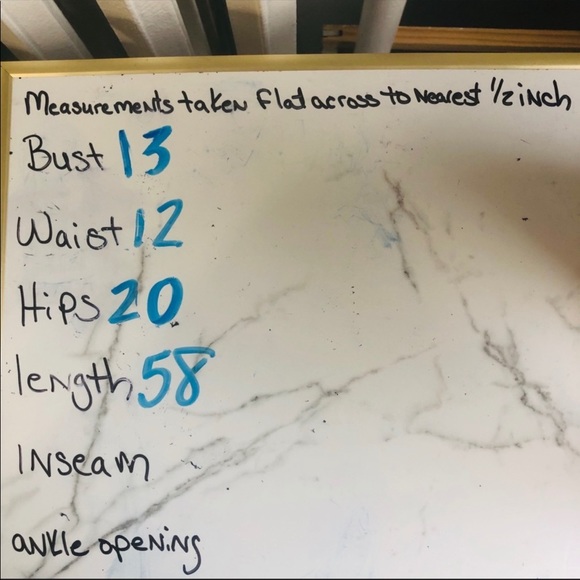 Measurements taken flat across to Nearest 1/2 iNch
Bust 13
Waist 12
Hips 20
length 58
INseam
aNkle opeNiNg